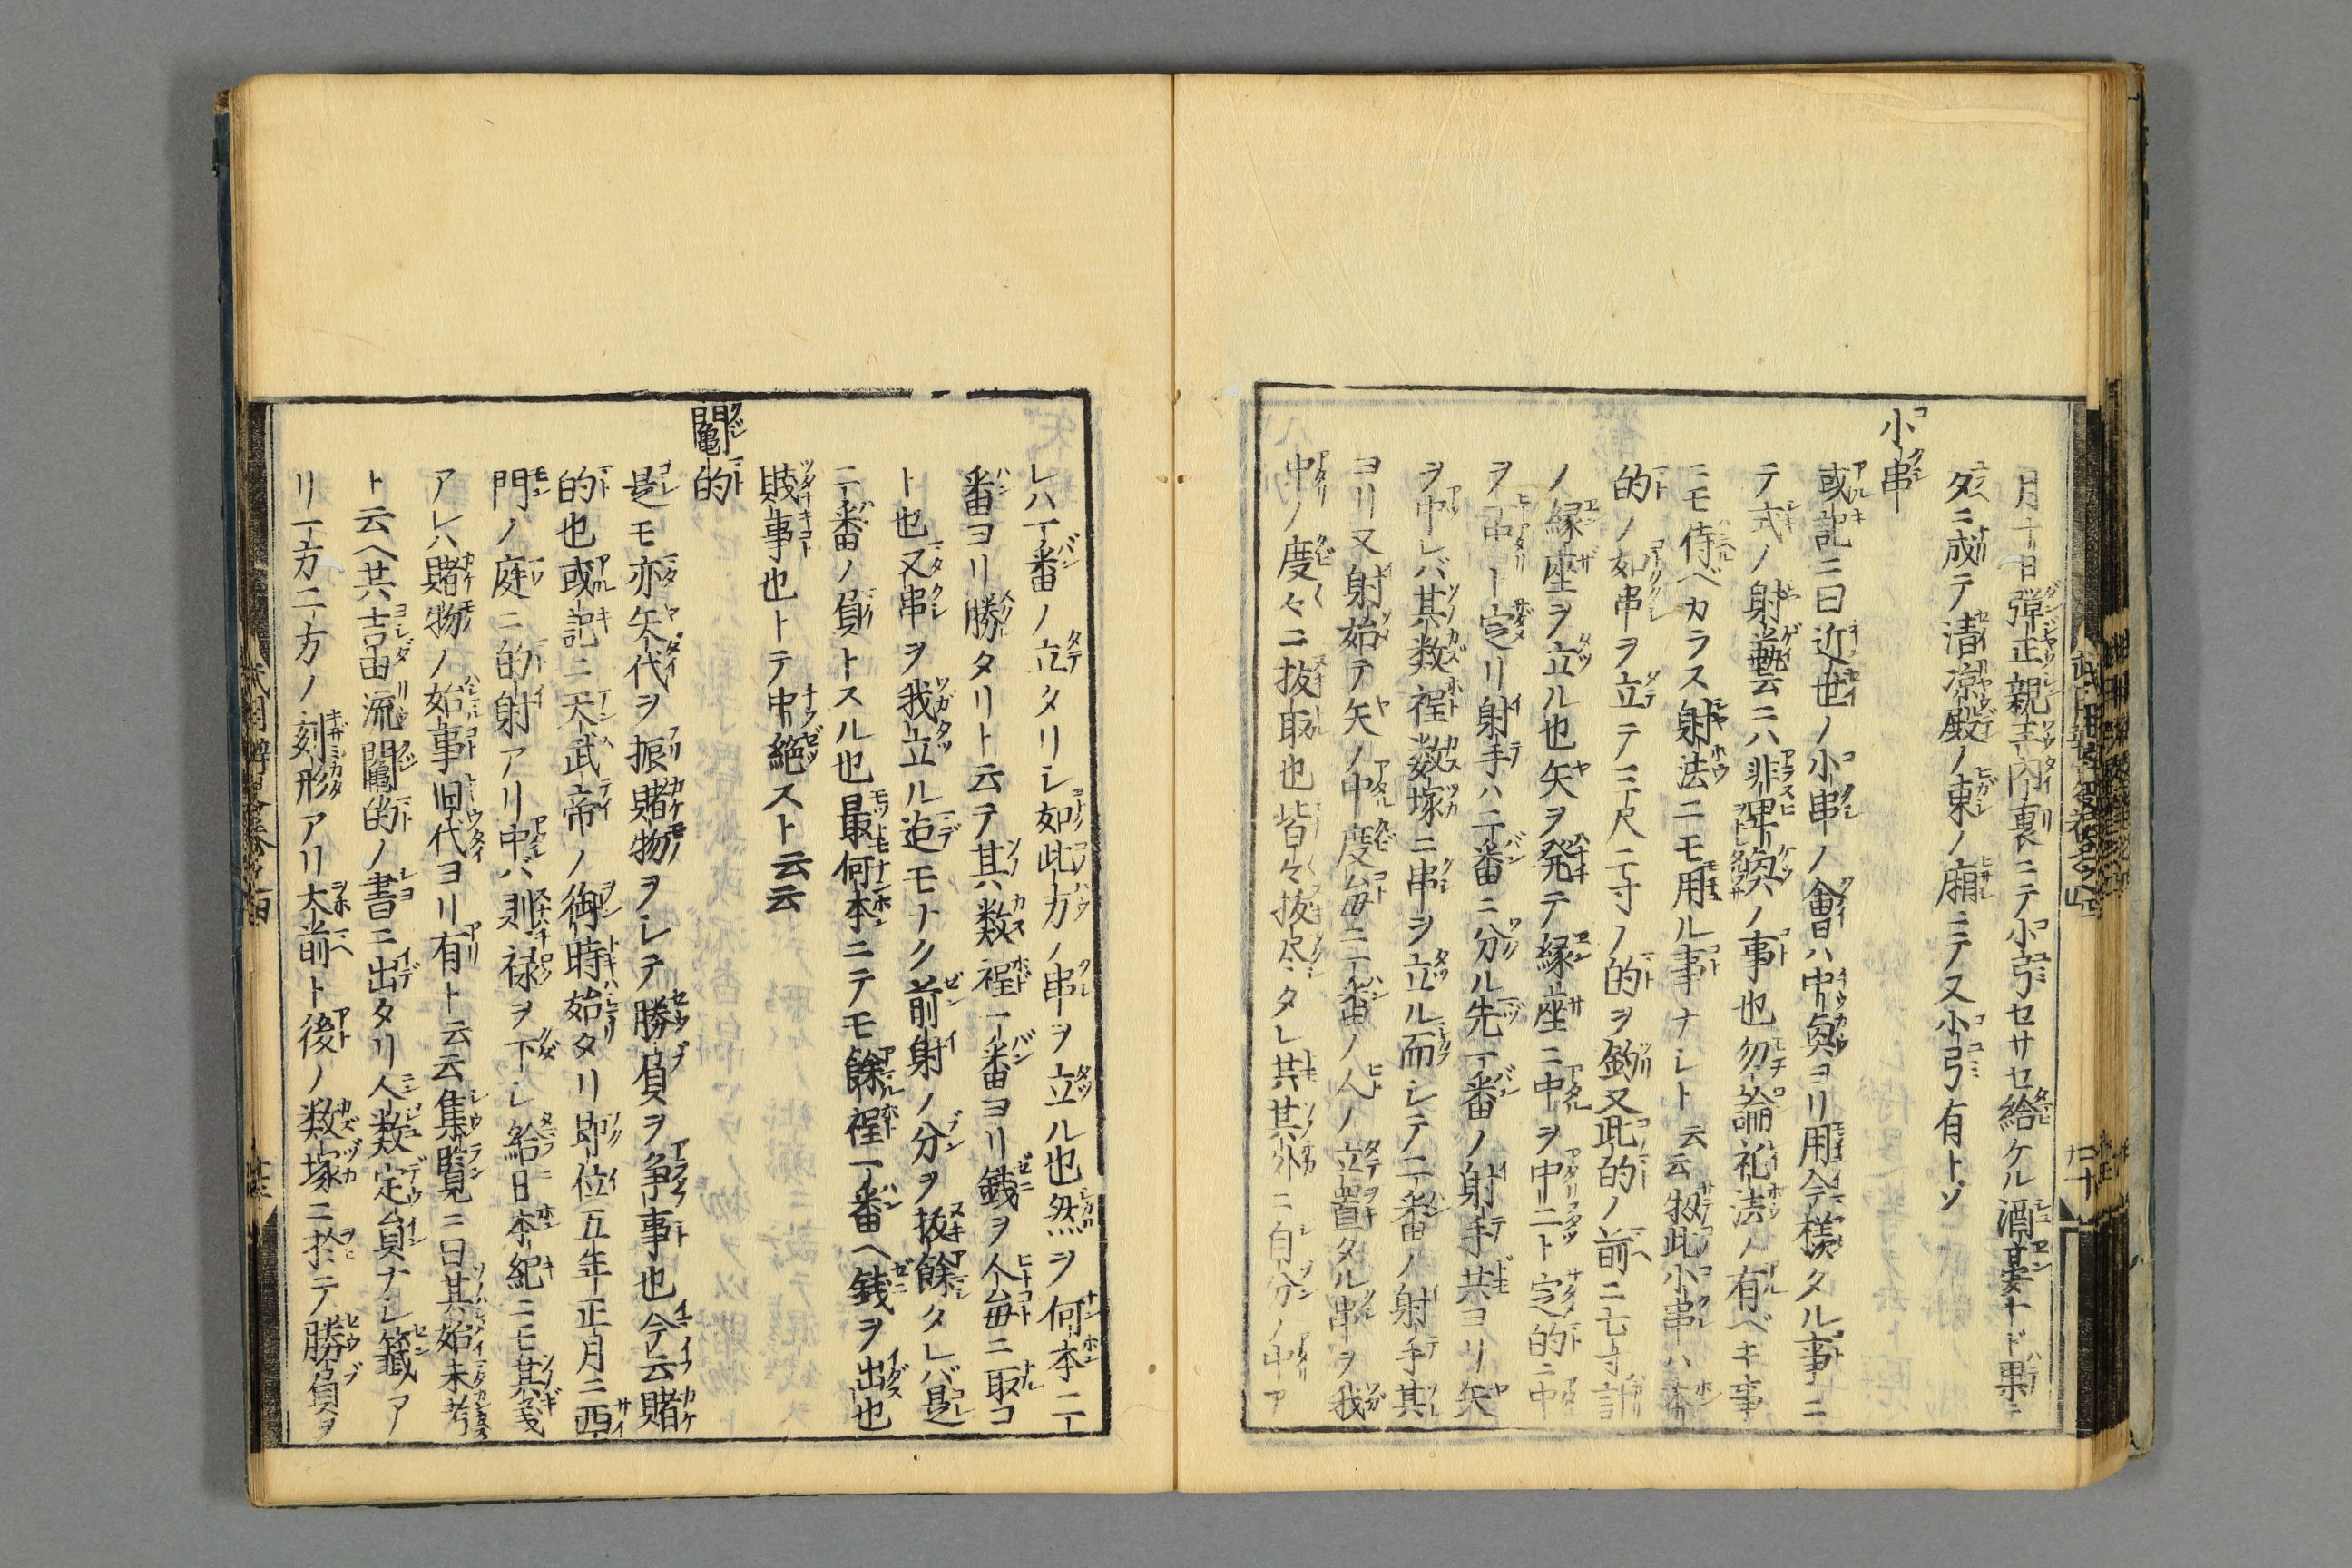 月十日弾正親王内裏ニテ小弓セサセ給ケル酒宴ナド果テ
夕ニ成テ清凉殿ノ東ノ廂ニテ又小弓有トゾ
小串
或記ニ曰近世ノ小串ノ會ハ中奐ヨリ用今様タル事ニ
テ式ノ射藝ニハ非卑奐ノ事也勿論礼法ノ有ベキ事
ニモ侍ベカラス射法ニモ用ル事ナレト云云扨此小串ハ本
的ノ如串ヲ立テ三尺二寸ノ的ヲ釣又此的ノ前ニ七寸計
ノ縁座ヲ立ル也矢ヲ発テ縁座ニ中ヲ中ニト定的ニ中
ヲ中ート定リ射手ハ二番ニ分ル先一番ノ射手共ヨリ矢
ヲ中レバ其数程数塚ニ串ヲ立ル而シテ二番ノ射手其
ヨリ又射始テ矢ノ中度毎ニ一番ノ人ノ立置タル串ヲ我
中ノ度々ニ抜取也皆々抜尽タレ共其外ニ自分ノ中ア
レハ一番ノ立タリシ如此方ノ串ヲ立ル也然ヲ何本ニテ
番ヨリ勝タリト云テ其数程一番ヨリ銭ヲ人毎ニ取コ
ト也又串ヲ我立ル迄モナク前射ノ分ヲ抜餘タレバ是
二番ノ負トスル也最何本ニテモ餘程一番ヘ銭ヲ出也
賎事也トテ中絶スト云云
鬮的
是モ亦矢代ヲ振賭物ヲシテ勝負ヲ争事也今云賭
的也或記ニ天武帝ノ御時始タリ即位五年正月ニ西
門ノ庭ニ的射アリ中バ則禄ヲ下シ給日本紀ニモ其義
アレハ賭物ノ始事旧代ヨリ有ト云云集覧ニ曰其始未考
ト云ヘ共吉田流鬮的ノ書ニ出タリ人数定員ナシ籤ア
リ一方二方ノ刻形アリ大前ト後ノ数塚ニ於テ勝負ヲ